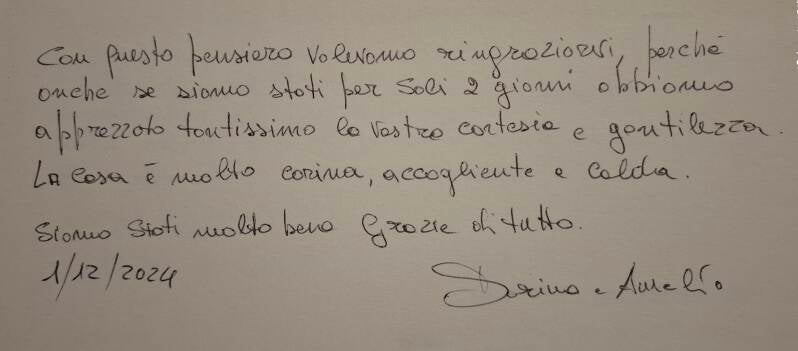 Con questo pensiero volevamo ringraziarvi, perché
anche se siamo stati per soli 2 giorni abbiamo
apprezzato tantissimo la vostra cortesia e gentilezza.
La casa è molto carina, accogliente e calda.
Siamo stati molto bene Grazie di tutto.
1/12/2024
e Aurelio